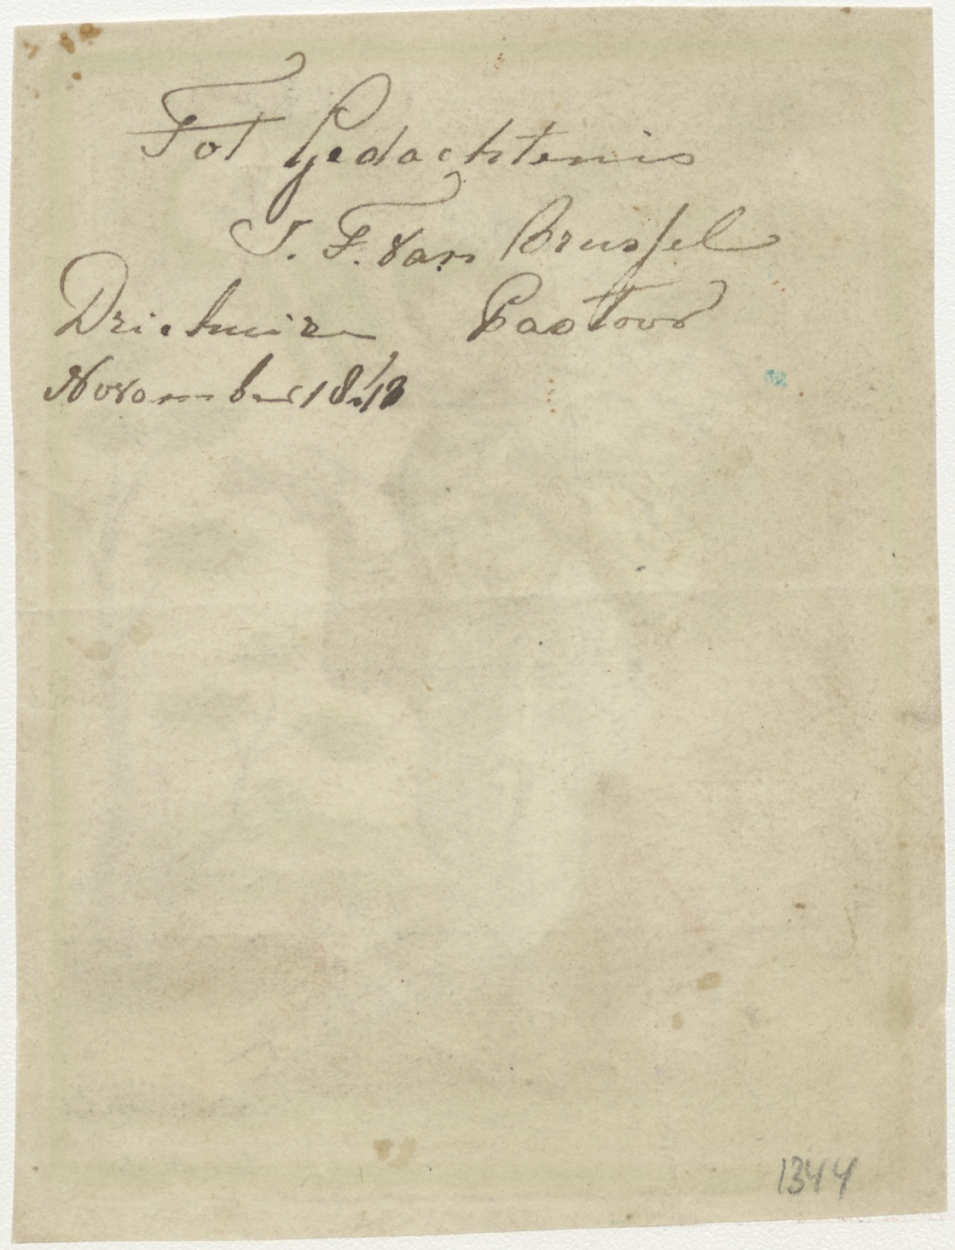 Tot Gedachtenis
J. F. Van Brussel
Driehuizen Pastoor
November 18
1344